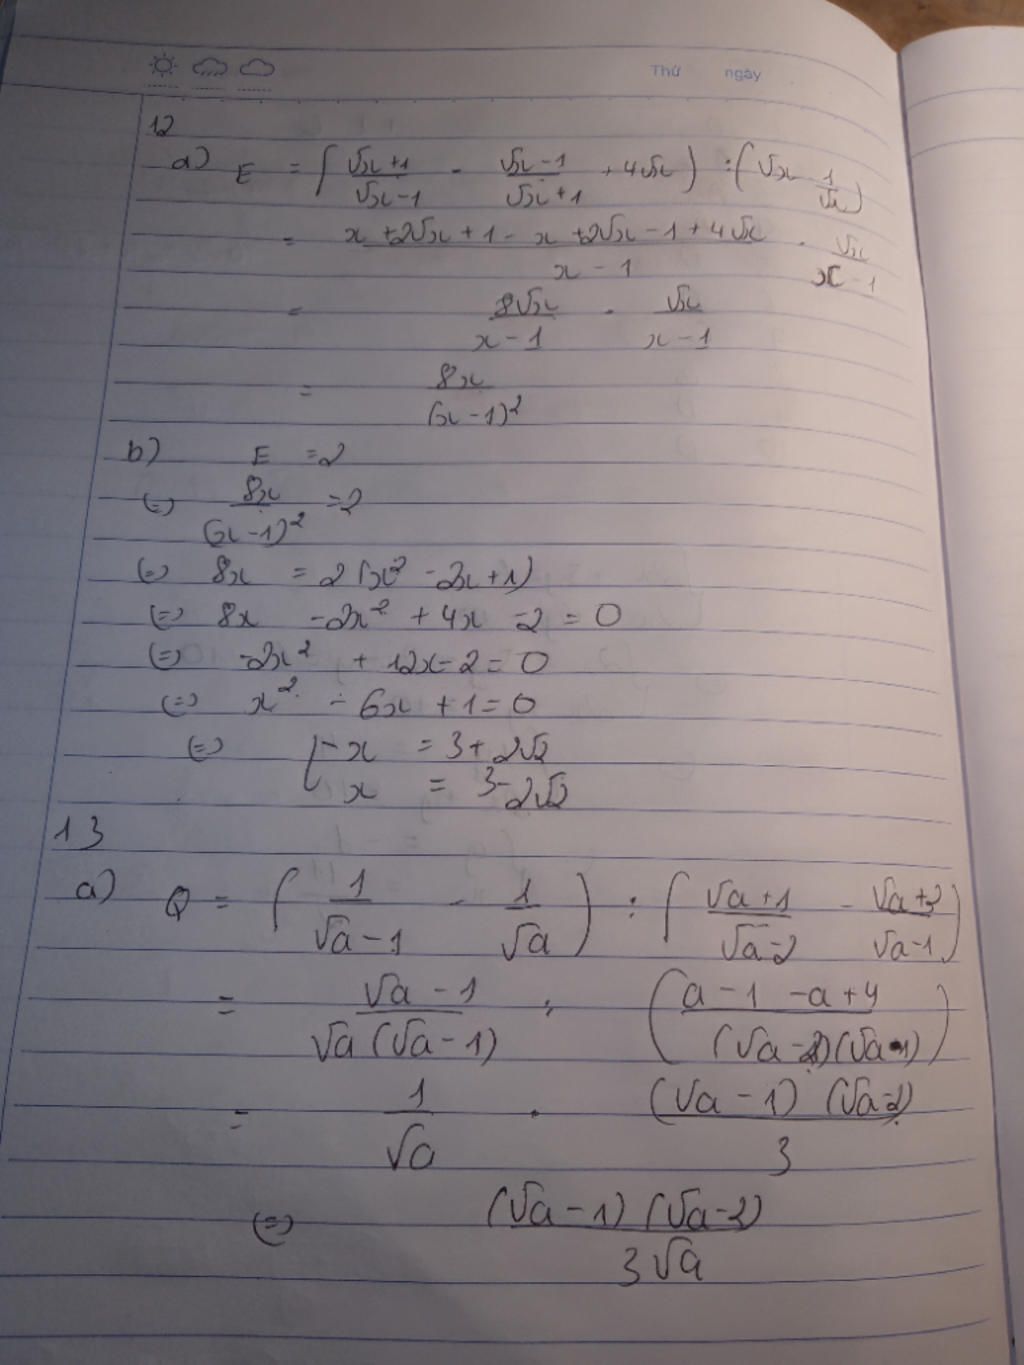 Thứ ngày
12
a) E = (√x+1 / √x-1 - √x-1 / √x+1 + 4√x) : (√x - 1/√x)
= x+2√x+1-x+2√x-1+4√x / x-1 . √x / x-1
= 8√x / x-1 . √x / x-1
= 8x / (x-1)²
b) E = 2
(=) 8x / (x-1)² = 2
(=) 8x = 2(x² - 2x + 1)
(=) 8x - 2x² + 4x - 2 = 0
(=) -2x² + 12x - 2 = 0
(=) x² - 6x + 1 = 0
(=) [ x = 3 + 2√2
x = 3 - 2√2
13
a) Q = (1 / √a-1 - 1 / √a) : (√a+1 / √a-2 - √a+2 / √a-1)
= √a-1 / √a(√a-1) : (a-1-a+4 / (√a-2)(√a-1))
= 1 / √a . (√a-1)(√a-2) / 3
(=) (√a-1)(√a-2) / 3√a